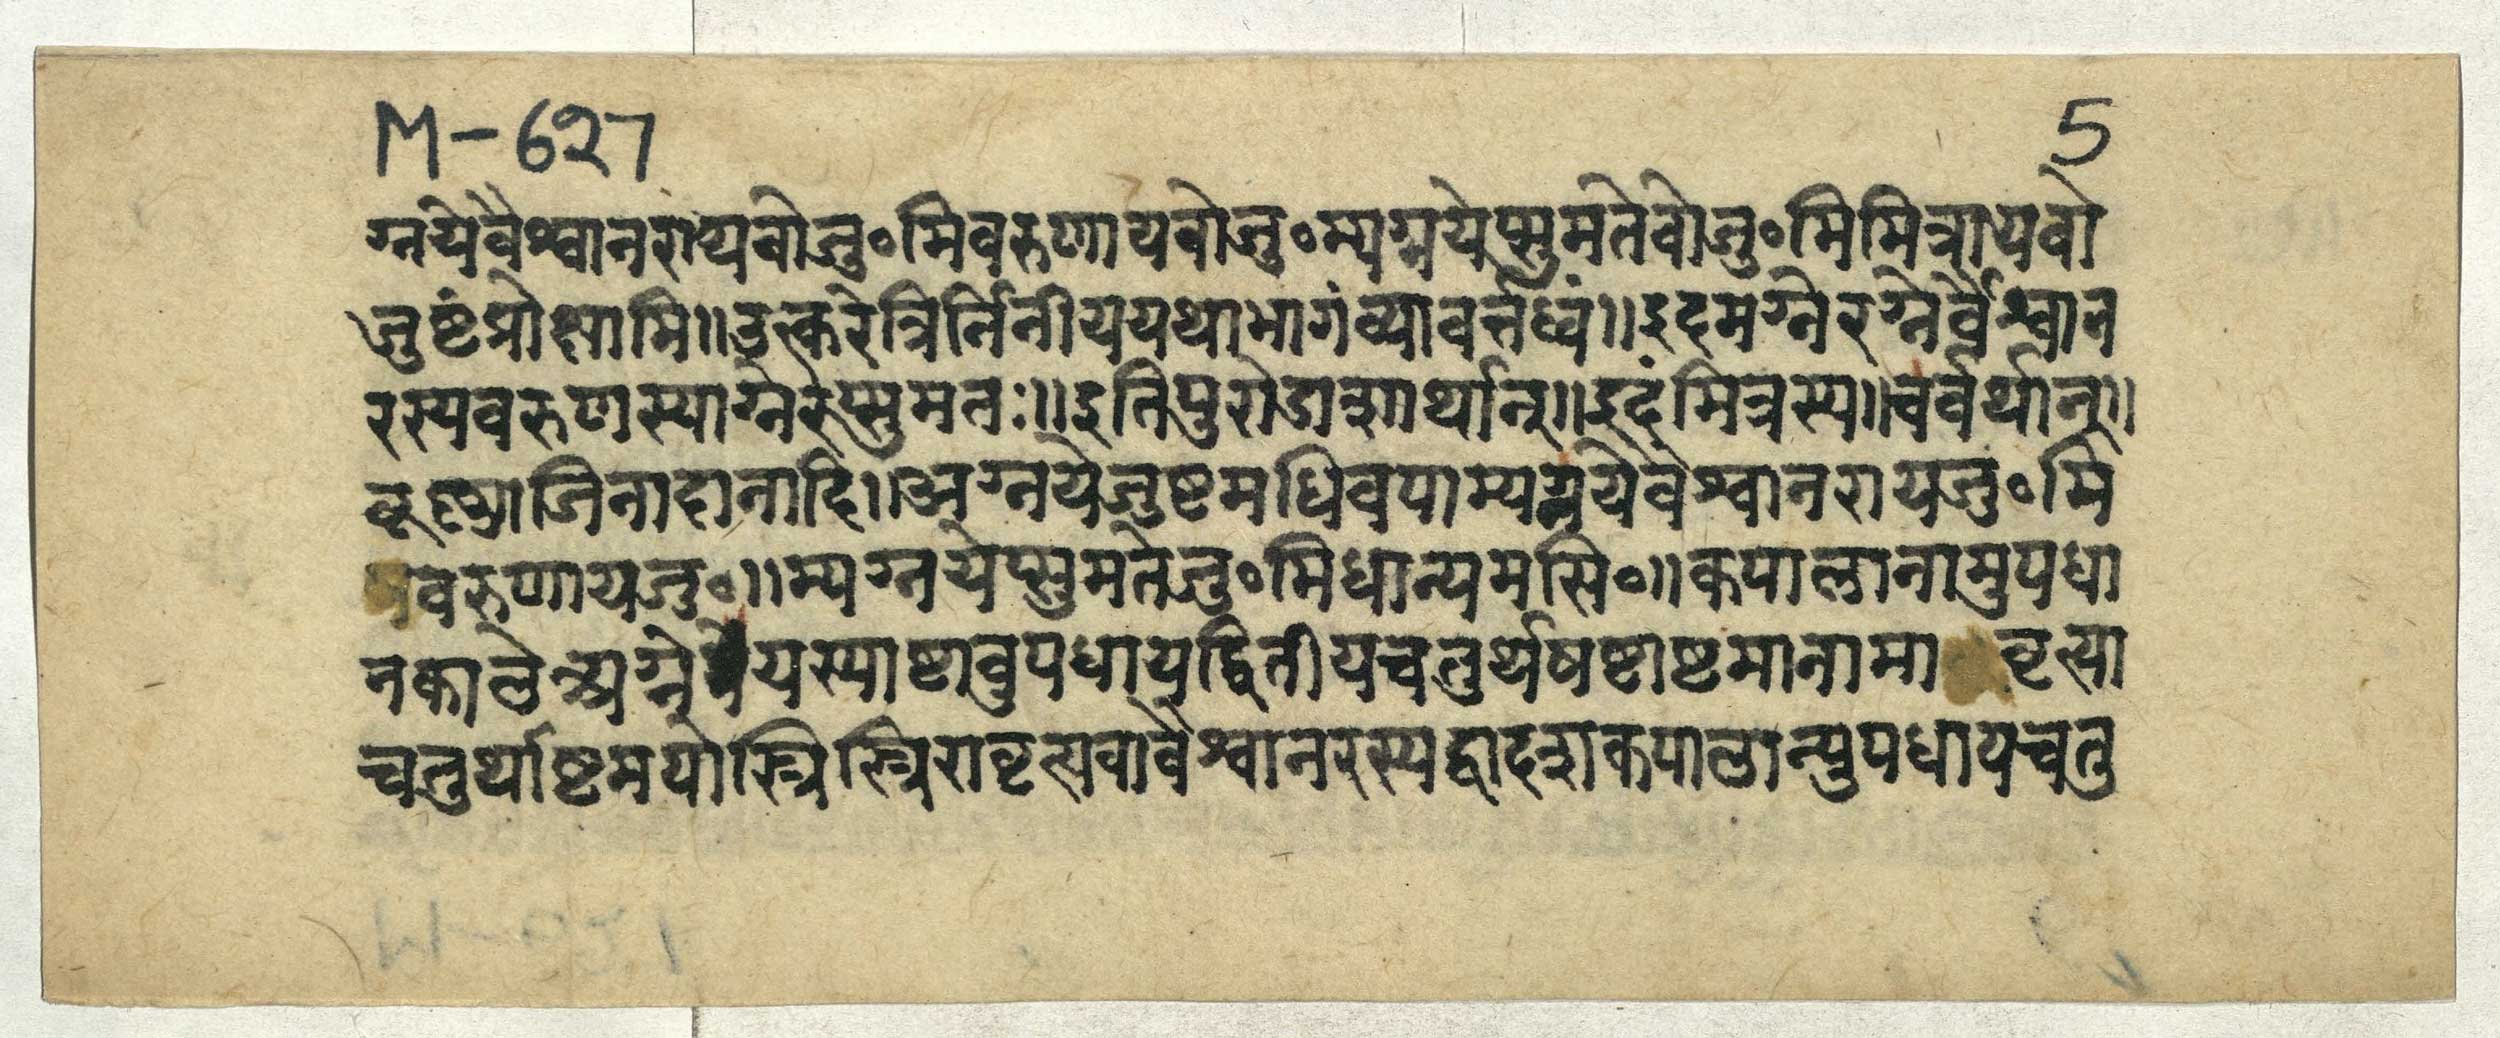 M-627 5
ग्नयेवैश्वानरायवोजु॰मिवरुणायवोजु॰म्यग्नयेप्सुमतेवोजु॰मिमित्रायवो
जुष्टंप्रोक्षामि॥उत्करेत्रिर्निनीययथाभागंव्यावर्त्तध्वं॥इदमग्नेरग्नेर्वैश्वान
रस्यवरुणस्याग्नेरप्सुमतः॥इतिपुरोडाशार्थान्॥इदंमित्रस्य॥चर्वर्थान्॥
कृष्णाजिनादानादि॥अग्नयेजुष्टमधिवपाम्यग्नयेवैश्वानरायजु॰मि
वरुणायजु॰॥म्यग्नयेप्सुमतेजु॰मिधान्यमसि॰॥कपालानामुपधा
नकाले यस्याष्टावुपधायद्वितीयचतुर्थषष्टाष्टमानामा वृत्या
चतुर्थाष्टमयोस्त्रिस्त्रिरावृत्यवावैश्वानरस्यद्वादशकपालान्युपधायचतु